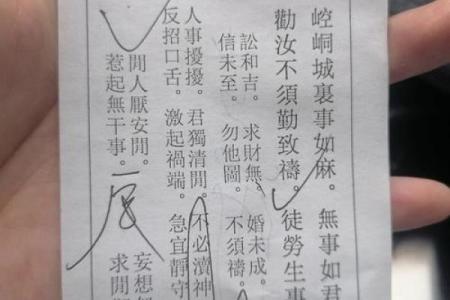 崆峒城裏事如麻。無事如君
勸汝不須勤致禱。徒勞生事
訟和吉。求財無。婚未成。
信未至。勿他圖。不須禱。
人事擾擾。君獨清閒。不必瀆神
反招口舌。激起禍端。急宜靜守
閒人厭安閒。妄想
惹起無干事。求閒